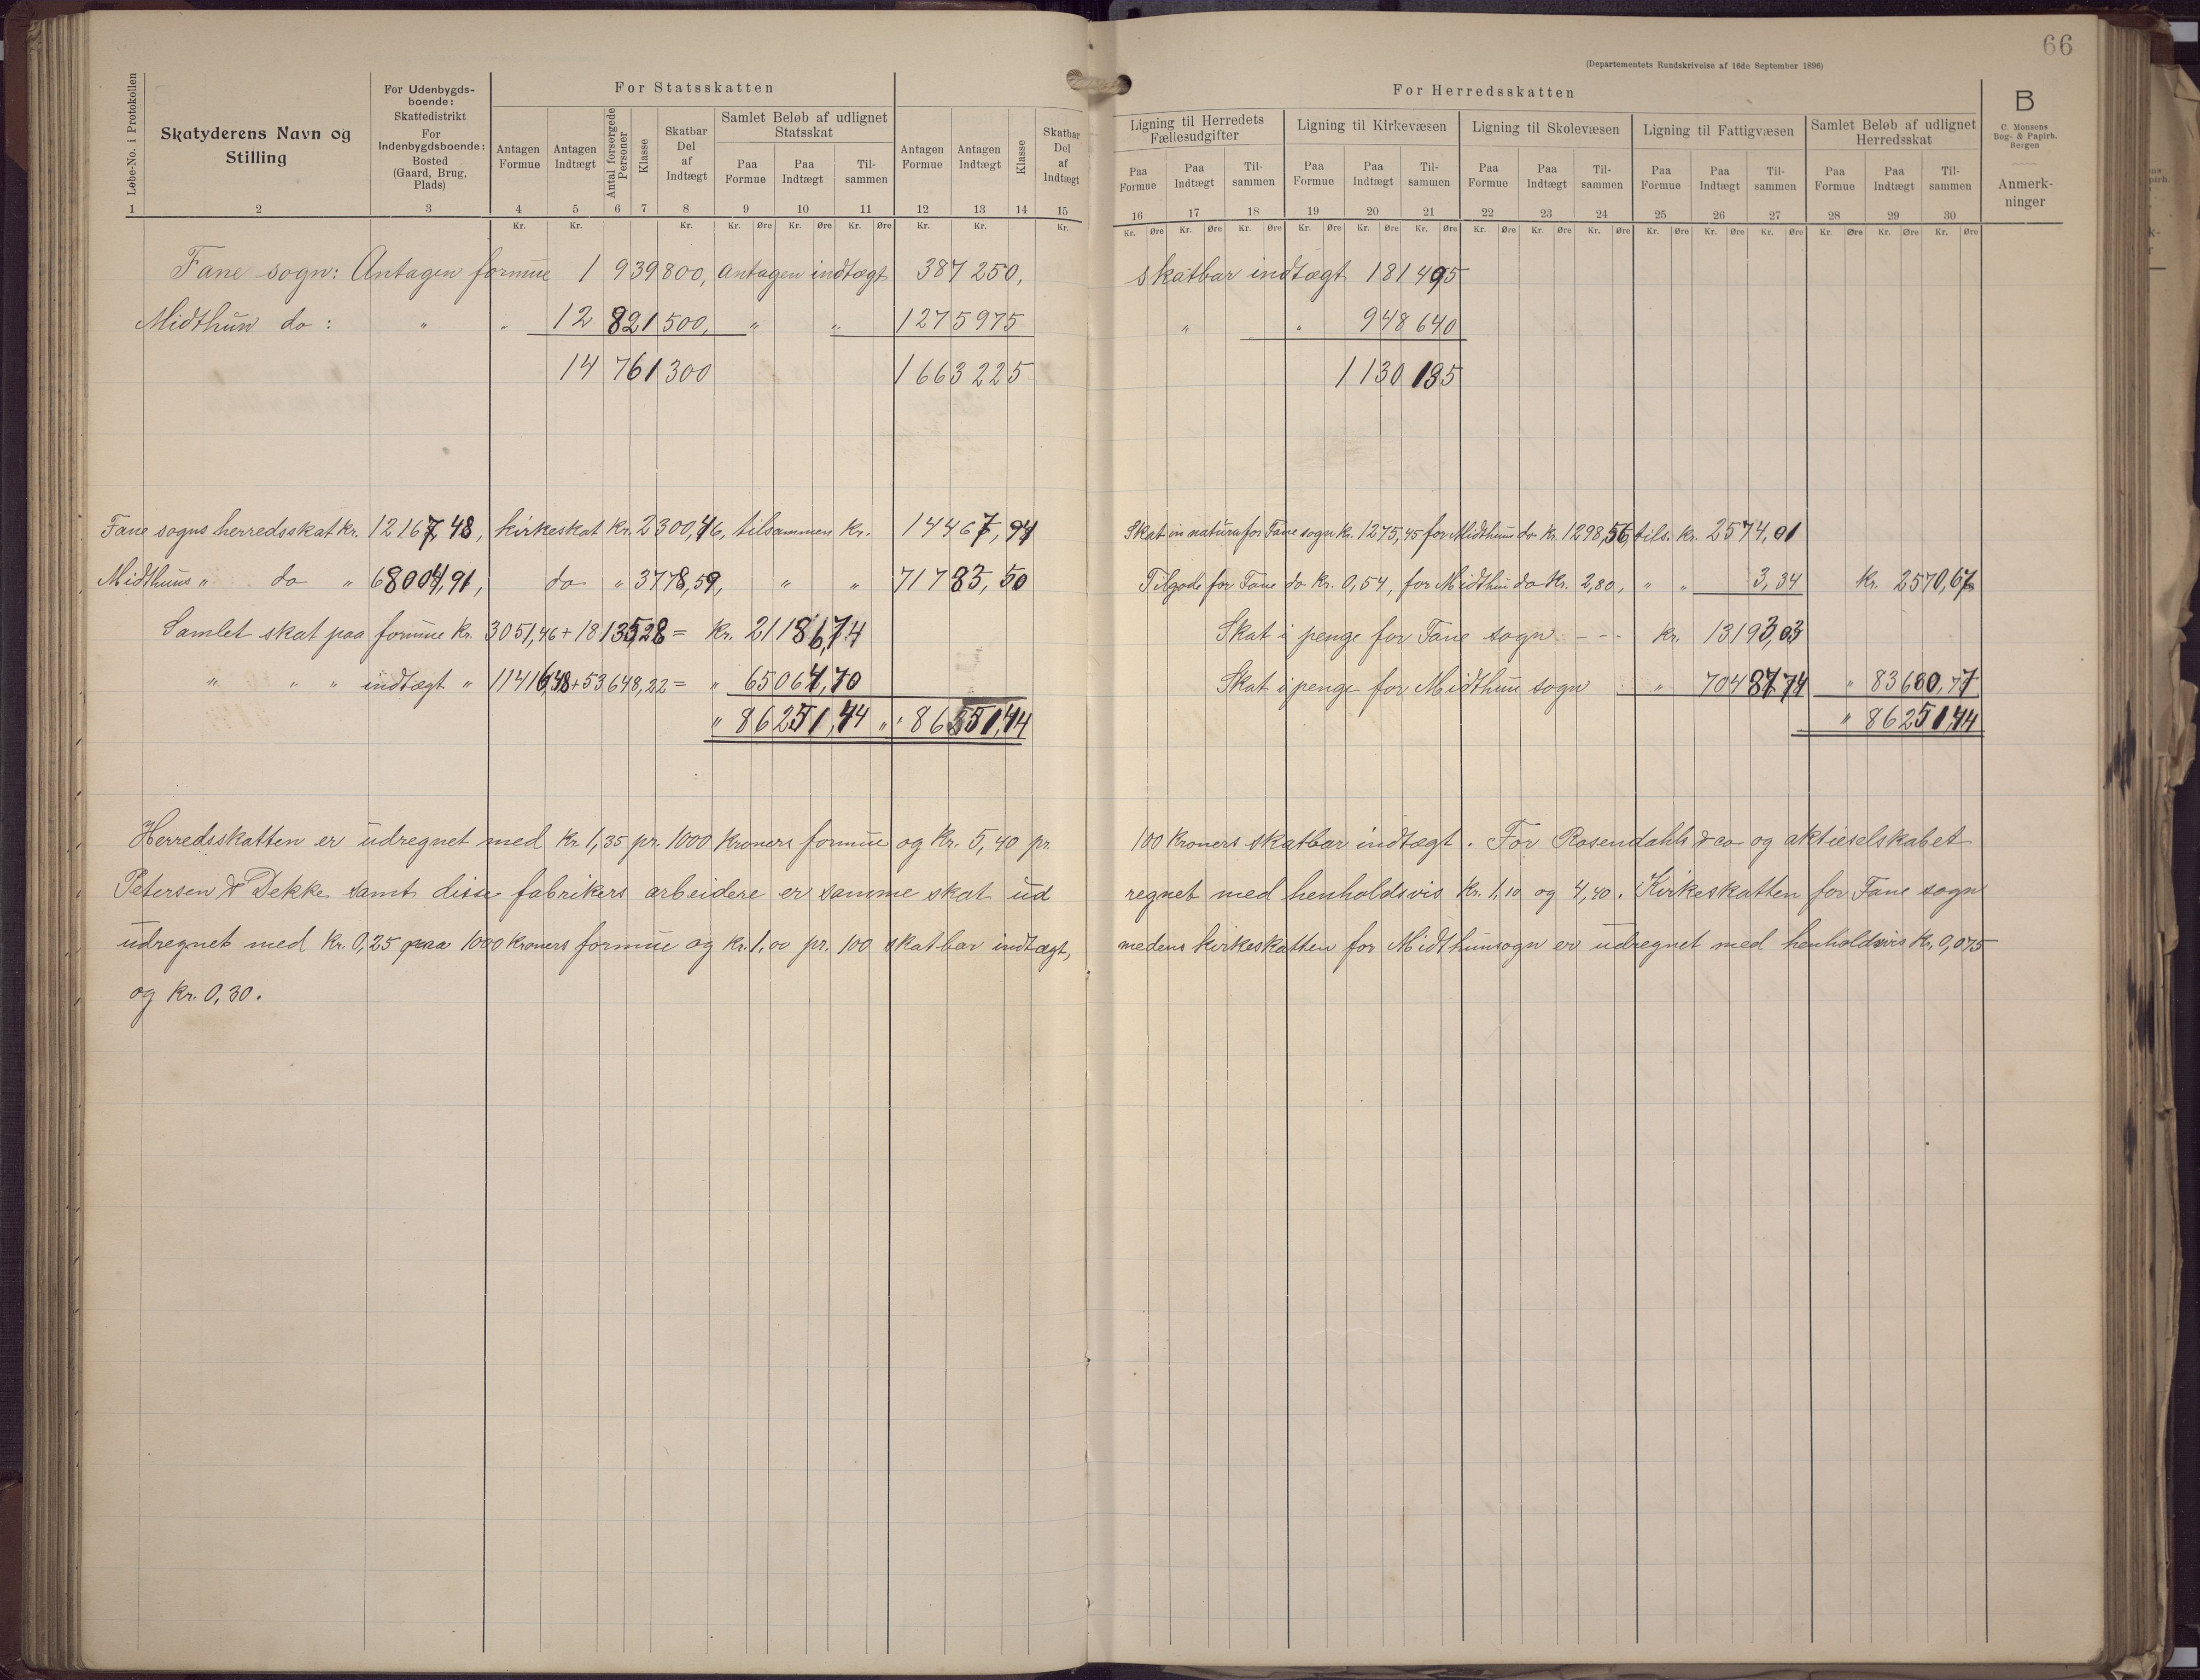 66
(Departementets Rundskrivelse af 16de September 1896)
Løbe-No. i Protokollen
Skatyderens Navn og Stilling
For Udenbygdsboende: Skattedistrikt
For Indenbygdsboende: Bosted (Gaard, Brug, Plads)
For Statsskatten
Antagen Formue
Antagen Indtægt
Antal forsørgede Personer
Klasse
Skatbar Del af Indtægt
Samlet Beløb af udlignet Statsskat
Paa Formue
Paa Indtægt
Tilsammen
Antagen Formue
Antagen Indtægt
Klasse
Skatbar Del af Indtægt
For Herredsskatten
Ligning til Herredets Fællesudgifter
Paa Formue
Paa Indtægt
Tilsammen
Ligning til Kirkevæsen
Paa Formue
Paa Indtægt
Tilsammen
Ligning til Skolevæsen
Paa Formue
Paa Indtægt
Tilsammen
Ligning til Fattigvæsen
Paa Formue
Paa Indtægt
Tilsammen
Samlet Beløb af udlignet Herredsskat
Paa Formue
Paa Indtægt
Tilsammen
B
C. Monsens
Bog- & Papirh.
Bergen
Anmerkninger
1 2 3 4 5 6 7 8 9 10 11 12 13 14 15 16 17 18 19 20 21 22 23 24 25 26 27 28 29 30
Kr. Kr. Kr. Kr. Øre Kr. Øre Kr. Øre Kr. Kr. Kr. Kr. Øre Kr. Øre Kr. Øre Kr. Øre Kr. Øre Kr. Øre Kr. Øre Kr. Øre Kr. Øre Kr. Øre Kr. Øre Kr. Øre Kr. Øre Kr. Øre Kr. Øre
Fane sogn: Antagen formue 1 939 800, antagen indtægt 387 250, skatbar indtægt 181 495
Midthun do: " " 12 821 500, " " 1 275 975 " " 948 640
14 761 300 1 663 225 1 130 135
Fane sogns herredsskat kr. 12167,48, kirkeskat kr. 2300,46, tilsammen kr. 14467,94 Skat in natura for Fane sogn kr. 1275,45 for Midthun do kr. 1298,56, tils. kr. 2574,01
Midthuns " do " 68004,91, do " 3778,59, " " 71783,50 Tilgode for Fane do kr. 0,54, for Midthun do kr. 2,80, " " 3,34 kr. 2570,67
Samlet skat paa formue kr. 3051,46 + 18135,28 = kr. 21186,74 Skat i penge for Fane sogn - - - kr. 13193,03
" " " indtægt " 11416,48 + 53648,22 = " 65064,70 Skat i penge for Midthun sogn " 70487,74 " 83680,77
" 86251,44 " 86251,44 " 86251,44
Herredsskatten er udregnet med kr. 1,35 pr. 1000 kroners formue og kr. 5,40 pr. 100 kroners skatbar indtægt. For Rosendahls & co og aktieselskabet
Petersen & Dekke samt disse fabrikers arbeidere er samme skat udregnet med henholdsvis kr. 1,10 og 4,40. Kirkeskatten for Fane sogn
udregnet med kr. 0,25 paa 1000 kroners formue og kr. 1,00 pr. 100 skatbar indtægt, medens kirkeskatten for Midthunsogn er udregnet med henholdsvis kr. 0,075
og kr. 0,30.